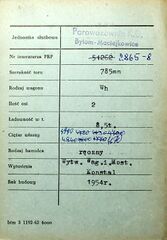 Jednostka służbowa
Parowozownia Kl.
Bytom-Maciejkowice
Nr inwentarza PKP 51262 2865-8
Szerokość toru 785mm
Rodzaj wagonu Wh
Ilość osi 2
Ładowność w t. 8,5t.
Ciężar własny 4400
Rodzaj hamulca ręczny
Wytwórnia Wytw. Wag.i.Most.
Konstal
Rok budowy 1954r.